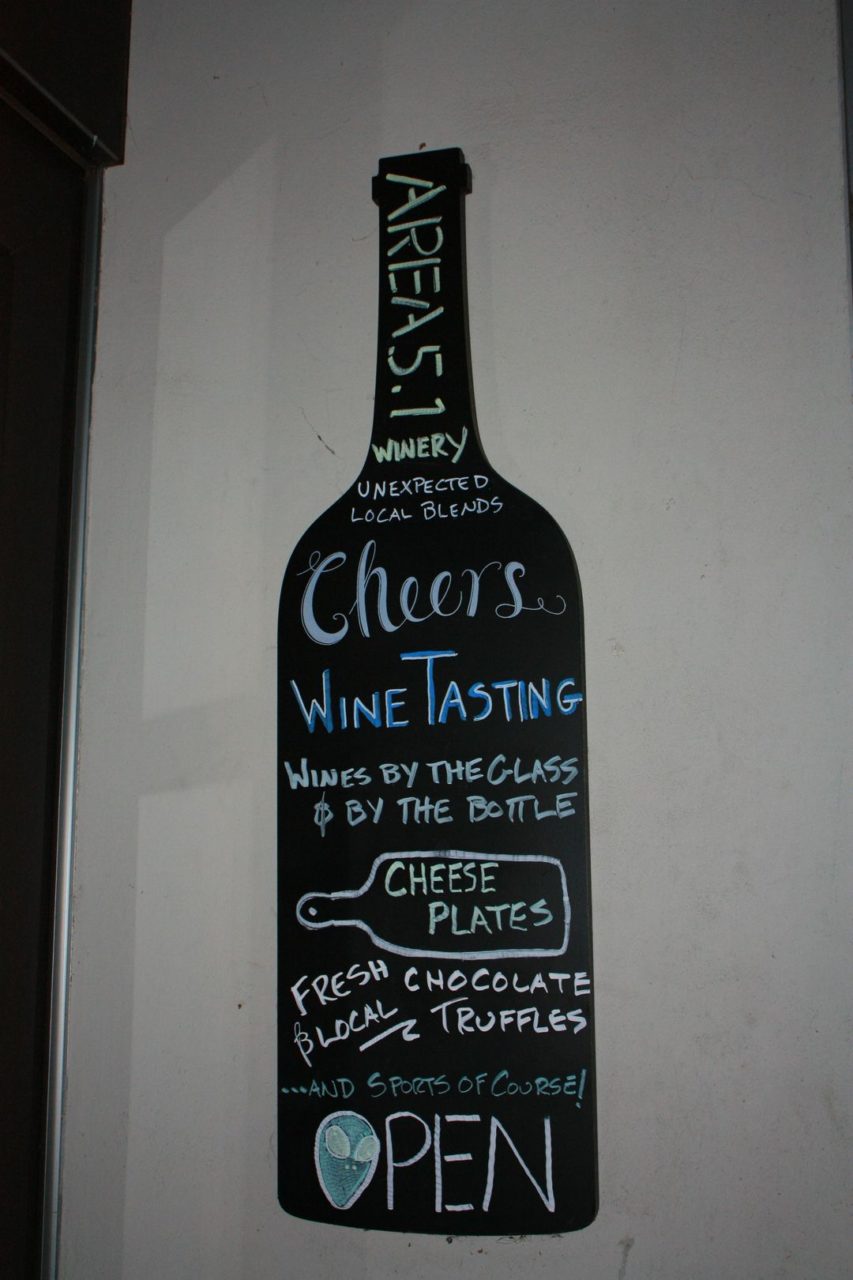 AREA 5.1
WINERY
UNEXPECTED
LOCAL BLENDS
Cheers
WINE TASTING
WINES BY THE GLASS
& BY THE BOTTLE
CHEESE
PLATES
FRESH
& LOCAL
CHOCOLATE
TRUFFLES
...AND SPORTS OF COURSE!
OPEN